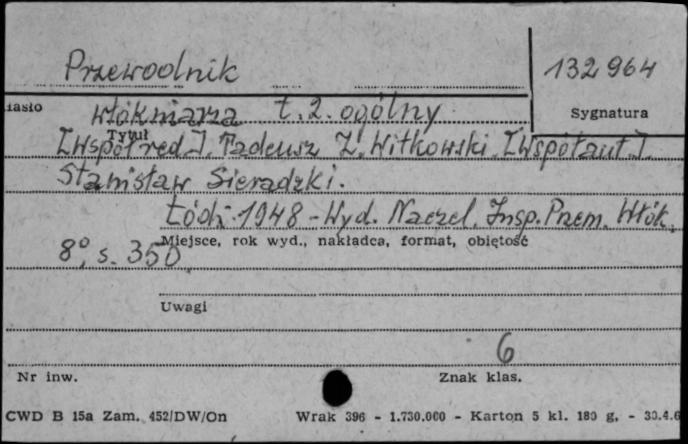 Przewodnik
132964
iasło
włókniarza t. 2. ogólny
Sygnatura
Tytuł
[Współred.]. Tadeusz Z. Witkowski. [Współaut.].
Stanisław Sieradzki.
Łódź 1948 - Wyd. Naczel. Insp. Przem. Włók.
Miejsce, rok wyd., nakładca, format, objętość
8°, s. 350
Uwagi
6
Nr inw.
Znak klas.
CWD B 15a Zam. 452/DW/On Wrak 396 - 1.730.000 - Karton 5 kl. 180 g. - 30.4.6